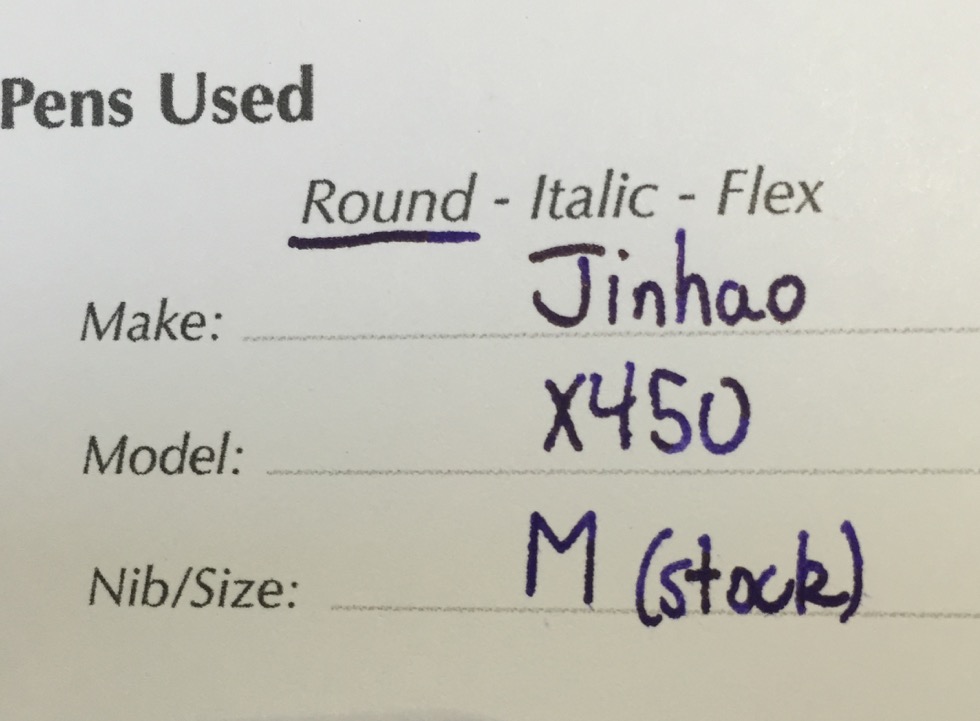 Pens Used
Round - Italic - Flex
Make: Jinhao
Model: X450
Nib/Size: M (stock)